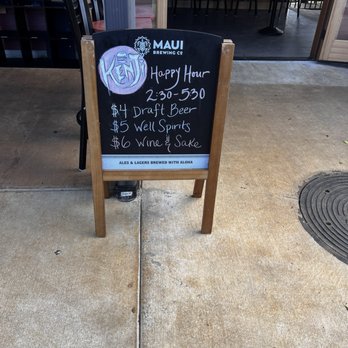 MAUI
BREWING CO
Kenji
Happy Hour
2:30-530
$4 Draft Beer
$5 Well Spirits
$6 Wine & Sake
ALES & LAGERS BREWED WITH ALOHA